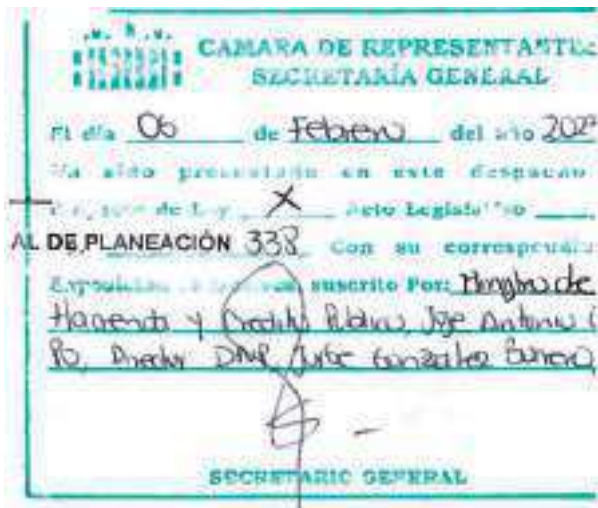 CAMARA DE REPRESENTANTES
SECRETARÍA GENERAL
El día 06 de Febrero del año 202
Ha sido presentado en este despacho
de Ley X Acto Legislativo
AL DE PLANEACIÓN 338 Con su correspondi
suscrito Por:
Hacienda y Credito Publico, Jose Antonio
Director DNP, Jorge Gonzalez
SECRETARIO GENERAL